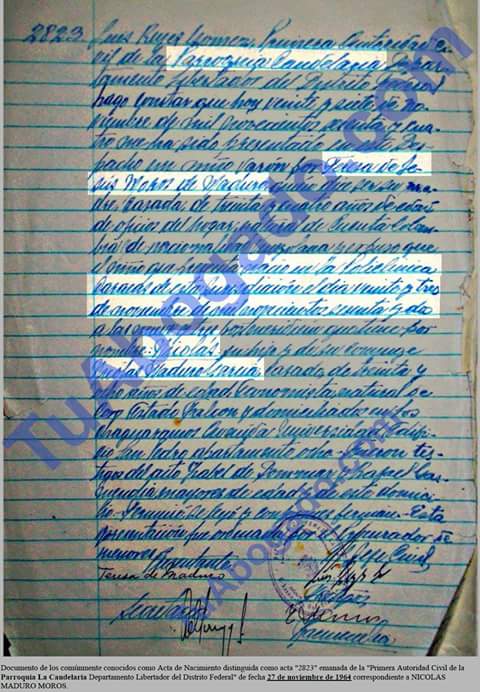 2823 Luis Reyes
civil de la Parroquia Candelaria Depar-
tamento Libertador del Distrito Federal
hago constar que hoy veinte y siete de no-
viembre de mil novecientos sesenta y cua-
tro me ha sido presentado en este Des-
pacho un niño varón por Teresa de Je-
sús Moros de Maduro que es su ma-
dre, casada de treinta y cuatro años de edad
de oficios del hogar, natural de Cúcuta Colom-
y expuso que
el niño que presenta nació en la Policlínica
Caracas de esta jurisdicción el día veinte y tres
de noviembre de mil novecientos sesenta y dos
a las que tiene por
nombre: Nicolás hijo y de su cónyuge
Nicolás Maduro García casado de treinta y
ocho años de edad Economista natural de
Coro Estado Falcón y domiciliados en Los
Chaguaramos Avenida Universidad Edifi-
cio San Pedro apartamento ocho. Fueron tes-
tigos del acto Isabel de y Rafael
mayores de edad y de este domici-
lio. y conformes firman. Esta
presentación fue ordenada por el Procurador de
menores.
Presentante
Teresa de Maduro
Testigos
Secretario
TuAbogado.com
TuAbogado.com
Documento de los comúnmente conocidos como Acta de Nacimiento distinguida como acta "2823" emanada de la "Primera Autoridad Civil de la
Parroquia La Candelaria Departamento Libertador del Distrito Federal" de fecha 27 de noviembre de 1964 correspondiente a NICOLAS
MADURO MOROS.